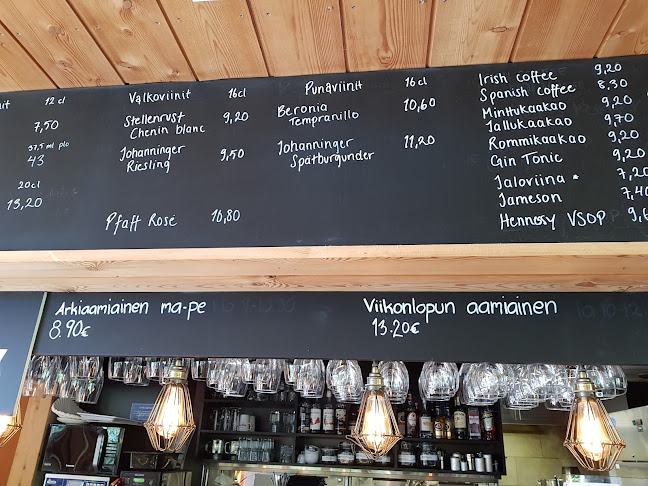 12 cl
7,50
37,5 ml plo
43
20cl
13,20
Valkoviinit 16cl
Stellenrust
Chenin blanc 9,20
Johanninger
Riesling 9,50
Pfaff Rosé 10,80
Punaviinit 16cl
Beronia
Tempranillo 10,60
Johanninger
Spätburgunder 11,20
Irish coffee 9,20
Spanish coffee 8,30
Minttukaakao 9,20
Jallukaakao 9,70
Rommikaakao 9,20
Gin Tonic 9,20
Jaloviina * 7,20
Jameson 7,40
Hennessy VSOP
Arkiaamiainen ma-pe
8.90€
Viikonlopun aamiainen
13.20€